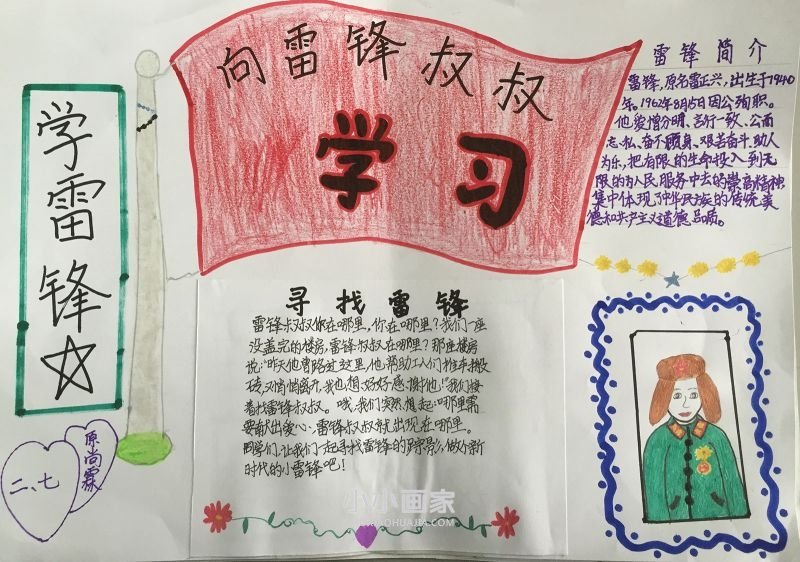 向雷锋叔叔
学习
学雷锋
二、七
原尚霖
雷锋简介
雷锋,原名雷正兴,出生于1940
年。1962年8月15日因公殉职。
他爱憎分明、言行一致、公而
忘私、奋不顾身、艰苦奋斗、助人
为乐,把有限的生命投入到无
限的为人民服务中去的崇高精神,
集中体现了中华民族的传统美
德和共产主义道德品质。
寻找雷锋
雷锋叔叔你在哪里,你在哪里?我们一座
没盖完的楼房,雷锋叔叔在哪里?那座楼房
说:"昨天他曾路过这里,他帮助工人们推车搬
砖,又悄悄离开,我也想好好感谢他!"我们接
着找雷锋叔叔。哦,我们突然想起:哪里需
要献出爱心,雷锋叔叔就出现在哪里。
同学们,让我们一起寻找雷锋的身影,做个新
时代的小雷锋吧!
小小画家
XIAOHUAJIA.COM